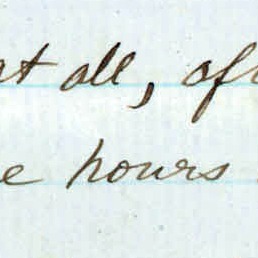 at all, aft
e hours